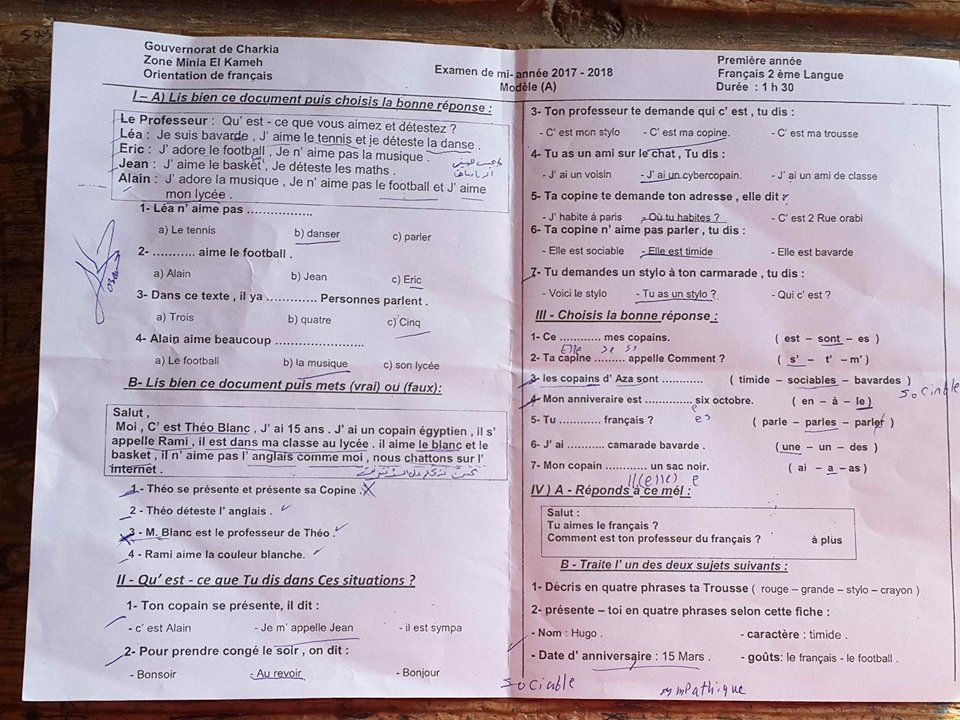 Gouvernorat de Charkia
Zone Minia El Kameh
Orientation de français
Examen de mi- année 2017 - 2018
Modèle (A)
Première année
Français 2 ème Langue
Durée : 1 h 30
I – A) Lis bien ce document puis choisis la bonne réponse :
Le Professeur : Qu' est - ce que vous aimez et détestez ?
Léa : Je suis bavarde , J' aime le tennis et je déteste la danse .
Eric : J' adore le football , Je n' aime pas la musique .
Jean : J' aime le basket , Je déteste les maths .
Alain : J' adore la musique , Je n' aime pas le football et J' aime
mon lycée .
1- Léa n' aime pas ……………..
a) Le tennis b) danser c) parler
2- ……….. aime le football .
a) Alain b) Jean c) Eric
3- Dans ce texte , il ya ………… Personnes parlent .
a) Trois b) quatre c) Cinq
4- Alain aime beaucoup …………………
a) Le football b) la musique c) son lycée
B- Lis bien ce document puis mets (vrai) ou (faux):
Salut ,
Moi , C' est Théo Blanc , J' ai 15 ans . J' ai un copain égyptien , il s'
appelle Rami , il est dans ma classe au lycée . il aime le blanc et le
basket , il n' aime pas l' anglais comme moi , nous chattons sur l'
internet .
1 - Théo se présente et présente sa Copine .
2 - Théo déteste l' anglais .
3 - M. Blanc est le professeur de Théo .
4 - Rami aime la couleur blanche.
II - Qu' est - ce que Tu dis dans Ces situations ?
1- Ton copain se présente, il dit :
- c' est Alain - Je m' appelle Jean - il est sympa
2- Pour prendre congé le soir , on dit :
- Bonsoir - Au revoir - Bonjour
3- Ton professeur te demande qui c' est , tu dis :
- C' est mon stylo - C' est ma copine. - C' est ma trousse
4- Tu as un ami sur le chat , Tu dis :
- J' ai un voisin - J' ai un cybercopain. - J' ai un ami de classe
5- Ta copine te demande ton adresse , elle dit :
- J' habite à paris - Où tu habites ? - C' est 2 Rue orabi
6- Ta copine n' aime pas parler , tu dis :
- Elle est sociable - Elle est timide - Elle est bavarde
7- Tu demandes un stylo à ton carmarade , tu dis :
- Voici le stylo - Tu as un stylo ? - Qui c' est ?
III - Choisis la bonne réponse :
1- Ce ………… mes copains. ( est – sont – es )
Elle se s'
2- Ta capine ……… appelle Comment ? ( s' – t' – m' )
3- les copains d' Aza sont ………… ( timide – sociables – bavardes )
sociable
4- Mon anniveraire est ………….. six octobre. ( en – à – le )
e
es
5- Tu ………… français ? ( parle – parles – parler )
6- J' ai ……….. camarade bavarde . ( une – un – des )
7- Mon copain ………… un sac noir. ( ai – a – as )
Il(elle) e
IV ) A - Réponds à ce mél :
Salut :
Tu aimes le français ?
Comment est ton professeur du français ? à plus
B - Traite l' un des deux sujets suivants :
1- Décris en quatre phrases ta Trousse ( rouge – grande – stylo – crayon )
2- présente – toi en quatre phrases selon cette fiche :
- Nom : Hugo . - caractère : timide .
- Date d' anniversaire : 15 Mars . - goûts: le français - le football .
sociable
sympathique